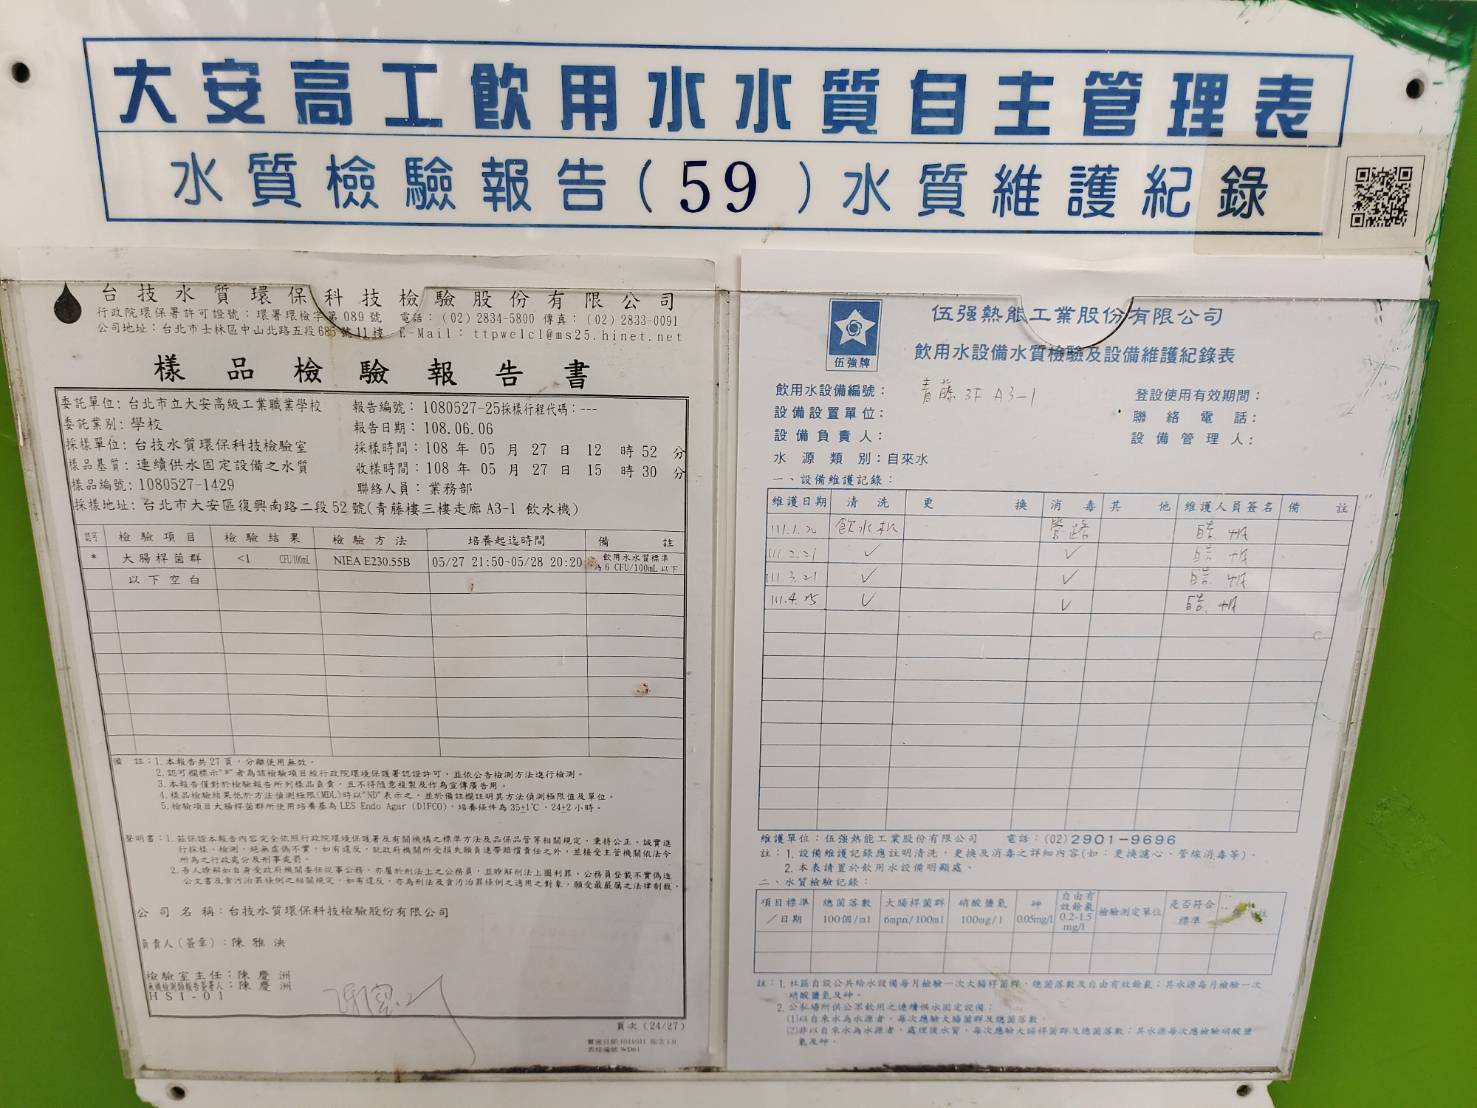 大安高工飲用水水質自主管理表
水質檢驗報告(59)水質維護紀錄
台技水質環保科技檢驗股份有限公司
行政院環保署許可證號：環署環檢字第089號 電話：(02)2834-5800 傳真：(02)2833-0091
公司地址：台北市士林區中山北路五段685號11樓 E-Mail：ttpwelcl@ms25.hinet.net
樣品檢驗報告書
委託單位：台北市立大安高級工業職業學校 報告編號：1080527-25採樣行程代碼：---
委託業別：學校 報告日期：108.06.06
採樣單位：台技水質環保科技檢驗室 採樣時間：108年05月27日12時52分
樣品基質：連續供水固定設備之水質 收樣時間：108年05月27日15時30分
樣品編號：1080527-1429 聯絡人員：業務部
採樣地址：台北市大安區復興南路二段52號(青藤樓三樓走廊A3-1 飲水機)
認可 檢驗項目 檢驗結果 檢驗方法 培養起迄時間 備註
* 大腸桿菌群 <1 CFU/100mL NIEA E230.55B 05/27 21:50~05/28 20:20 飲用水水質標準
為6 CFU/100mL以下
以下空白
備註：1.本報告共27頁，分離使用無效。
2.認可欄標示"*"者為該檢驗項目經行政院環境保護署認證許可，並依公告檢測方法進行檢測。
3.本報告僅對於檢驗報告所列樣品負責，且不得隨意複製及作為宣傳廣告用。
4.樣品檢驗結果低於方法偵測極限(MDL)時以"ND"表示之，並於備註欄註明其方法偵測極限值及單位。
5.檢驗項目大腸桿菌群所使用培養基為LES Endo Agar (DIFCO)，培養條件為35±1℃，24±2小時。
聲明書：1.茲保證本報告內容完全依照行政院環境保護署及有關機構之標準方法及品保品管等相關規定，秉持公正、誠實進
行採樣、檢測。絕無虛偽不實，如有違反，就政府機關所受損失願負連帶賠償責任之外，並接受主管機關依法令
所為之行政處分及刑事處罰。
2.吾人瞭解如自身受政府機關委任從事公務，亦屬於刑法上之公務員，並瞭解刑法上圖利罪、公務員登載不實偽造
公文書及貪污治罪條例之相關規定，如有違反，亦為刑法及貪污治罪條例之適用之對象，願受最嚴厲之法律制裁。
公司名稱：台技水質環保科技檢驗股份有限公司
負責人(簽章)：陳雅泱
檢驗室主任：陳慶洲
無機檢測類報告簽署人：陳慶洲
HSI-01
頁次(24/27)
伍強牌
伍强熱能工業股份有限公司
飲用水設備水質檢驗及設備維護紀錄表
飲用水設備編號：青藤 3F A3-1 登設使用有效期間：
設備設置單位： 聯絡電話：
設備負責人： 設備管理人：
水源類別：自來水
一、設備維護記錄：
維護日期 清洗 更換 消毒 其他 維護人員簽名 備註
111.1.20 飲水机 管路
111.2.21 ✓ ✓
111.3.21 ✓ ✓
111.4.25 ✓ ✓
維護單位：伍强熱能工業股份有限公司 電話：(02)2901-9696
註：1.設備維護記錄應註明清洗、更換及消毒之詳細內容(如：更換濾心、管線消毒等)。
2.本表請置於飲用水設備明顯處。
二、水質檢驗記錄：
項目標準／日期 總菌落數 100個/ml 大腸桿菌群 6mpn/100ml 硝酸鹽氮 100mg/l 砷 0.05mg/l 自由有效餘氯 0.2-1.5 mg/l 檢驗測定單位 是否符合標準 備註
註：1.社區自設公共給水設備每月檢驗一次大腸桿菌群、總菌落數及自由有效餘氯；其水源每月檢驗一次
硝酸鹽氮及砷。
2.公私場所供公眾飲用之連續供水固定設備：
(1)以自來水為水源者，每次應驗大腸菌群及總菌落數。
(2)非以自來水為水源者，處理後水質，每次應驗大腸桿菌群及總菌落數；其水源每次應檢驗硝酸鹽
氮及砷。